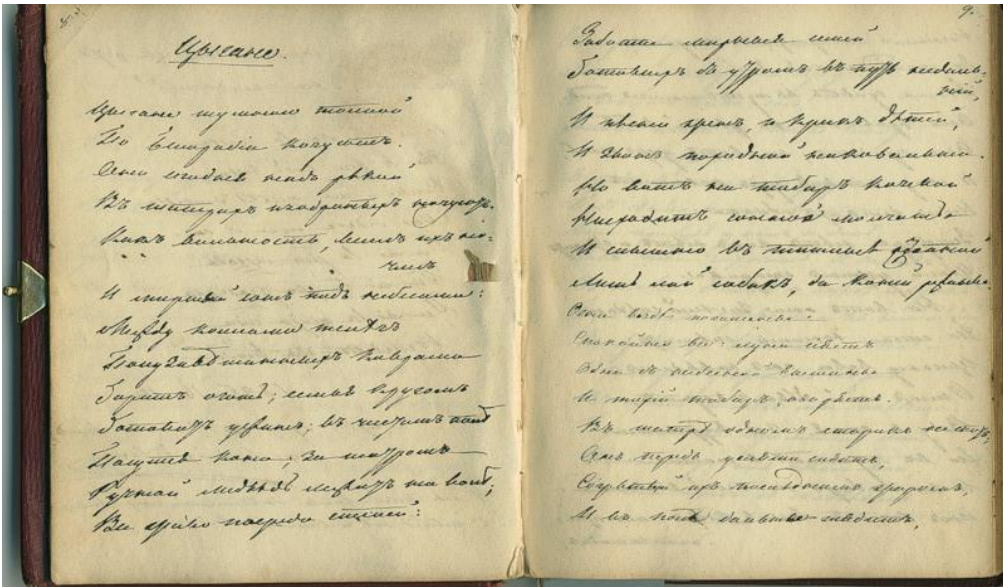 8.
Цыгане.
Цыгане шумною толпой
По Бессарабіи кочуютъ.
Они сегодня надъ рѣкой
Въ шатрахъ изодранныхъ ночуютъ.
Какъ вольность, веселъ ихъ ноч-
члегъ
И мирный сонъ подъ небесами:
Между колесами телѣгъ
Полузавѣшанныхъ коврами
Горитъ огонь; семья кругомъ
Готовитъ ужинъ; въ чистомъ полѣ
Пасутся кони; за шатромъ
Ручной медвѣдь лежитъ на волѣ;
Все живо посреди степей:
9.
Заботы мирныя семей
Готовыхъ съ утромъ въ путь недаль-
ній,
И пѣсни женъ, и крикъ дѣтей,
И звонъ походной наковальни.
Но вотъ на таборъ кочевой
Нисходитъ сонное молчанье
И слышно въ тишинѣ степной
Лишь лай собакъ, да коней ржанье.
Огни вездѣ погашены.
Спокойно все: луна сіяетъ
Одна съ небесной вышины
И тихій таборъ озаряетъ.
Въ шатрѣ одномъ старикъ не спитъ;
Онъ передъ углями сидитъ,
Согрѣтый ихъ послѣднимъ жаромъ,
И въ поле дальнее глядитъ,